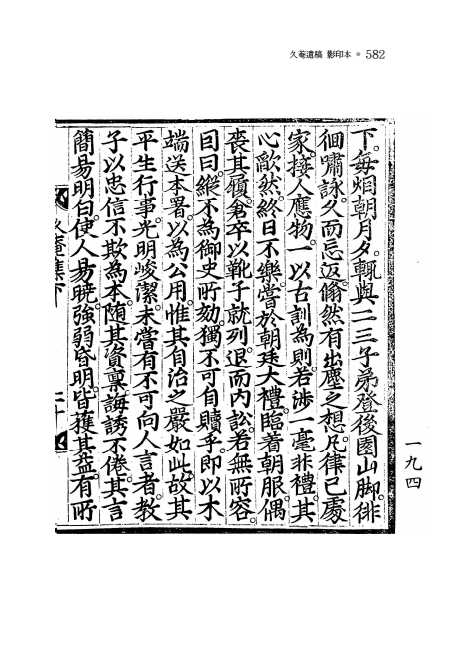 久菴遺稿 影印本 • 582
下。每烟朝月夕。輒與二三子弟登後園山脚。徘
徊嘯詠。久而忘返。翛然有出塵之想。凡律己處
家。接人應物。一以古訓爲則。若涉一毫非禮。其
心歉然。終日不樂。嘗於朝廷大禮。臨着朝服。偶
喪其履。倉卒以靴子就列。退而內訟。若無所容。
目曰。縱不爲御史所劾。獨不可自贖乎。即以木
端送本署。以爲公用。惟其自治之嚴如此。故其
平生行事。光明峻潔。未嘗有不可向人言者。敎
子以忠信不欺爲本。隨其資禀。誨誘不倦。其言
簡易明白。使人易曉。強弱昏明。皆獲其益。有所
久菴集下
二十
一九四